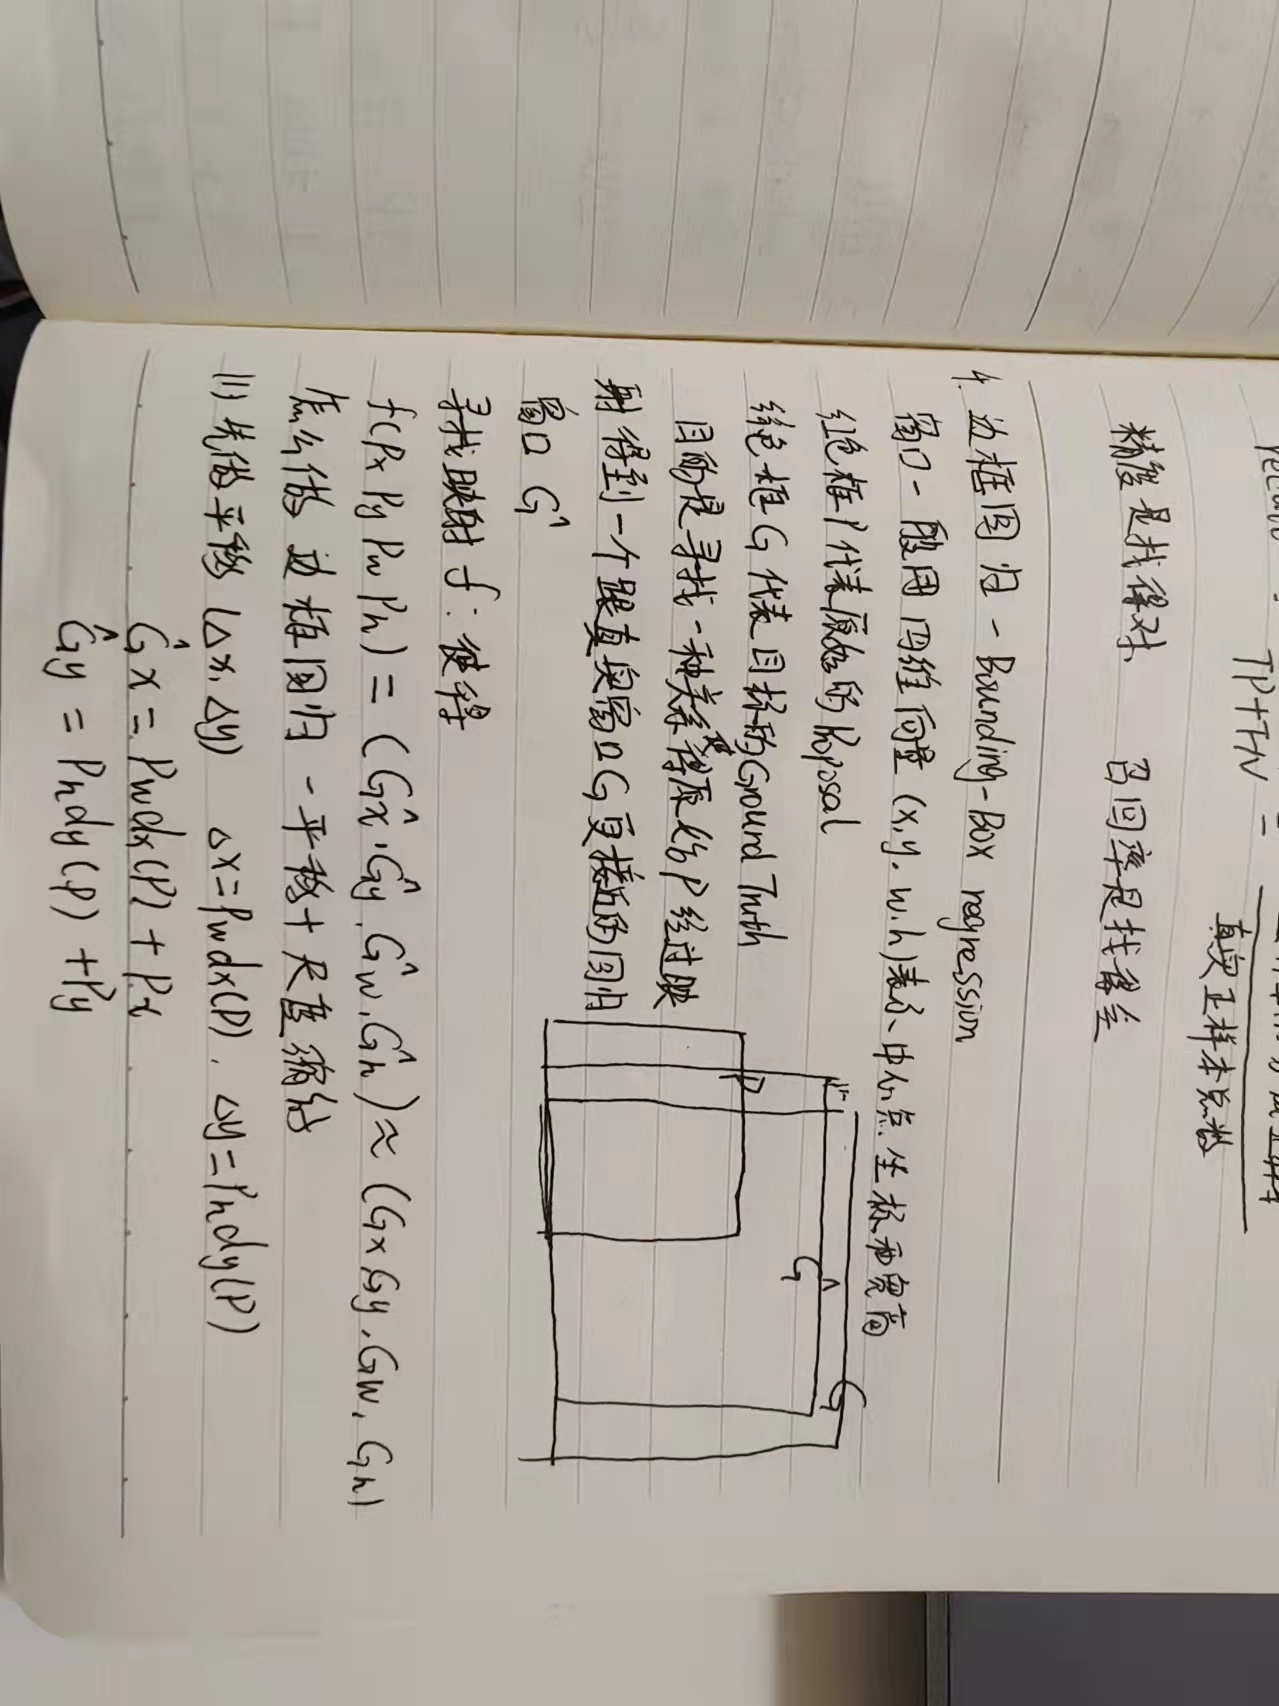 TP+TN =
真实正样本总数
精度是找得对 召回率是找得全
4. 边框回归 - Bounding-Box regression
窗口一般用四维向量 (x,y,w,h)表示、中心点坐标和宽高
红色框P代表原始的Proposal
绿色框G代表目标的Ground Truth
目的是寻找一种关系使得原始P经过映
射得到一个跟真实窗口G更接近的回归
窗口 Ĝ
P
Ĝ
G
寻找映射 f: 使得
f(Px Py Pw Ph) = (Ĝx, Ĝy, Ĝw, Ĝh) ≈ (Gx Gy, Gw, Gh)
怎么做边框回归 - 平移+尺度缩放
(1) 先做平移 (Δx, Δy) Δx=Pwdx(P), Δy=Phdy(P)
Ĝx = Pwdx(P) + Px
Ĝy = Phdy(P) + Py